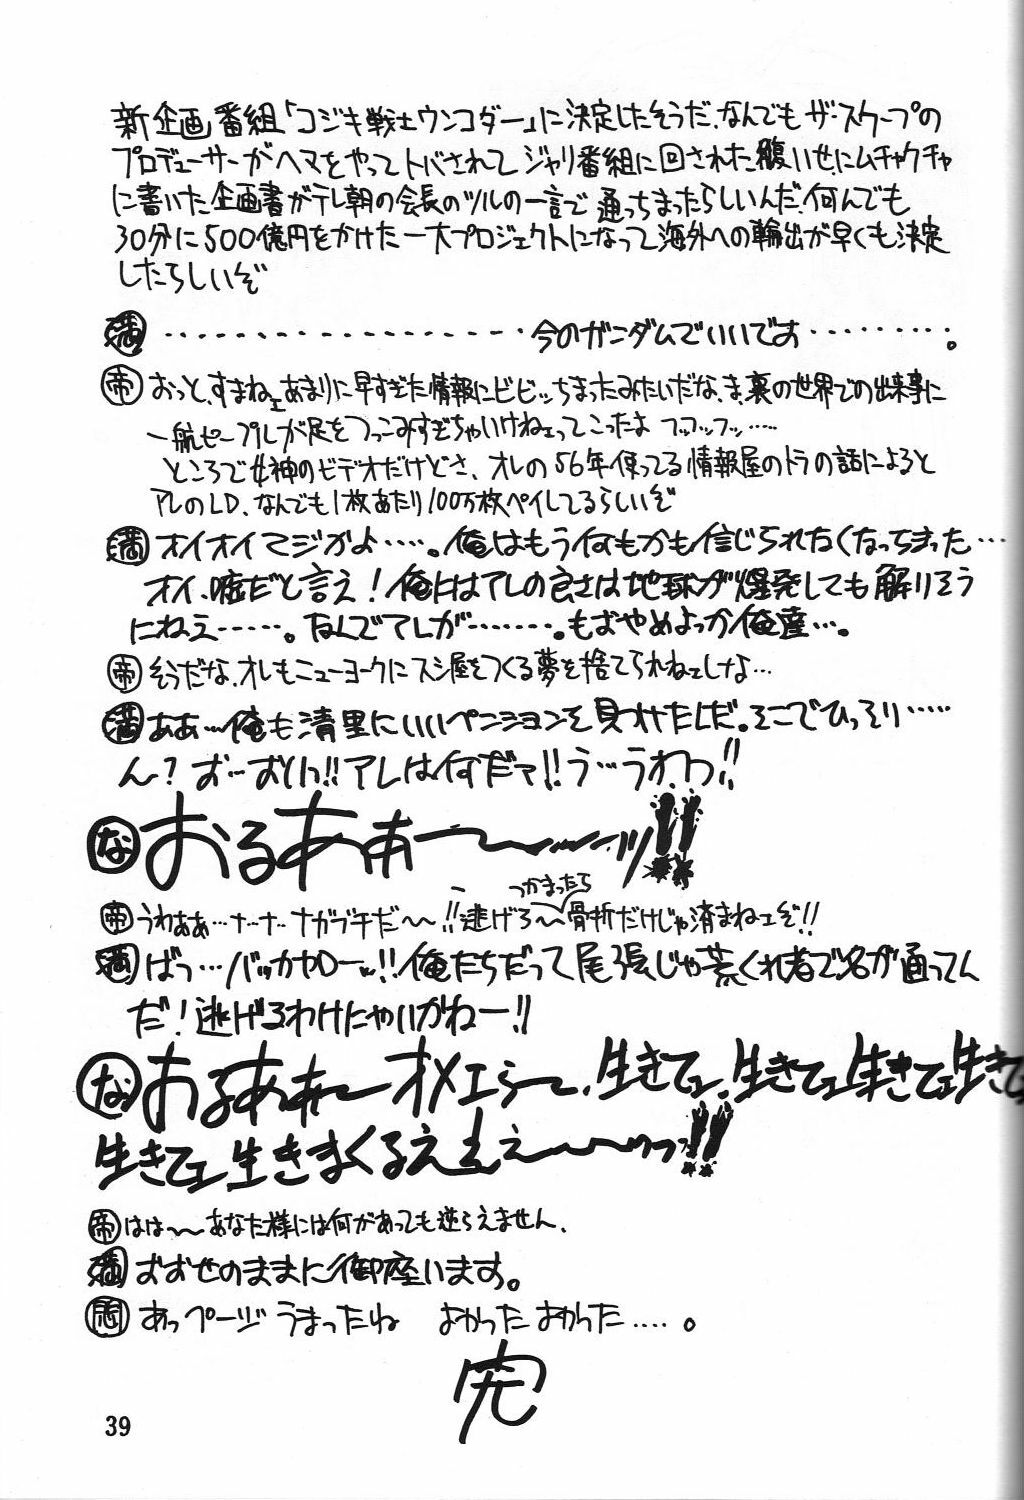 新企画番組「コジキ戦士ウンコダー」に決定したそうだ、なんでもザ・スクープの
プロデューサーがヘマをやってトバされてジャリ番組に回された腹いせにムチャクチャ
に書いた企画書がテレ朝の会長のツルの一言で通っちまったらしいんだ、何んでも
30分に500億円をかけた一大プロジェクトになって海外への輸出が早くも決定
したらしいぞ
満 ・・・・・・・・・・・・・・・・・・今のガンダムでいいですよ・・・・・・・・。
帝 おっと、すまねェあまりに早すぎた情報にビビッちまったみたいだな、ま、裏の世界での出来事に
一般ピープルが足をつっこみすぎちゃいけねェってこったよ フッフッフッ……
ところで女神のビデオだけどさ、オレの56年使ってる情報屋のトラの話によると
アレのLD、なんでも1枚あたり100万枚ペイしてるらしいぞ
満 オイオイマジかよ……。俺はもう何もかも信じられなくなっちまった…
オイ、嘘だと言え！俺にはアレの良さは地球が爆発しても解りそう
にねえ……。なんでアレが……。もおやめよっか俺達…。
帝 そうだな、オレもニューヨークにスシ屋をつくる夢を捨てられねェしな…
満 ああ…俺も清里にいいペンションを見つけたしだ。そこでひっそり……
ん？おーおいっ!!アレは何だァ!!う…うわっ!!
な おるあぁ〜〜〜ッ!!
つかまったら
帝 うわぁぁ…ナ…ナ…ナガブチだ〜〜!!逃げろ〜骨折だけじゃ済まねェぞ!!
満 ばっ…バッカヤローッ!!俺たちだって尾張じゃ荒くれ者で名が通ってん
だ！逃げるわけにゃいかねー!!
な おるあぁ〜オメェら〜、生きてェ、生きてェ生きてェ生きて
生きてェ生きまくるえぇぇ〜〜〜ッ!!
帝 はは〜〜あなた様には何があっても逆らえません、
満 おおせのままに御座います。
あっページうまったね よかったよかった……。
完
39